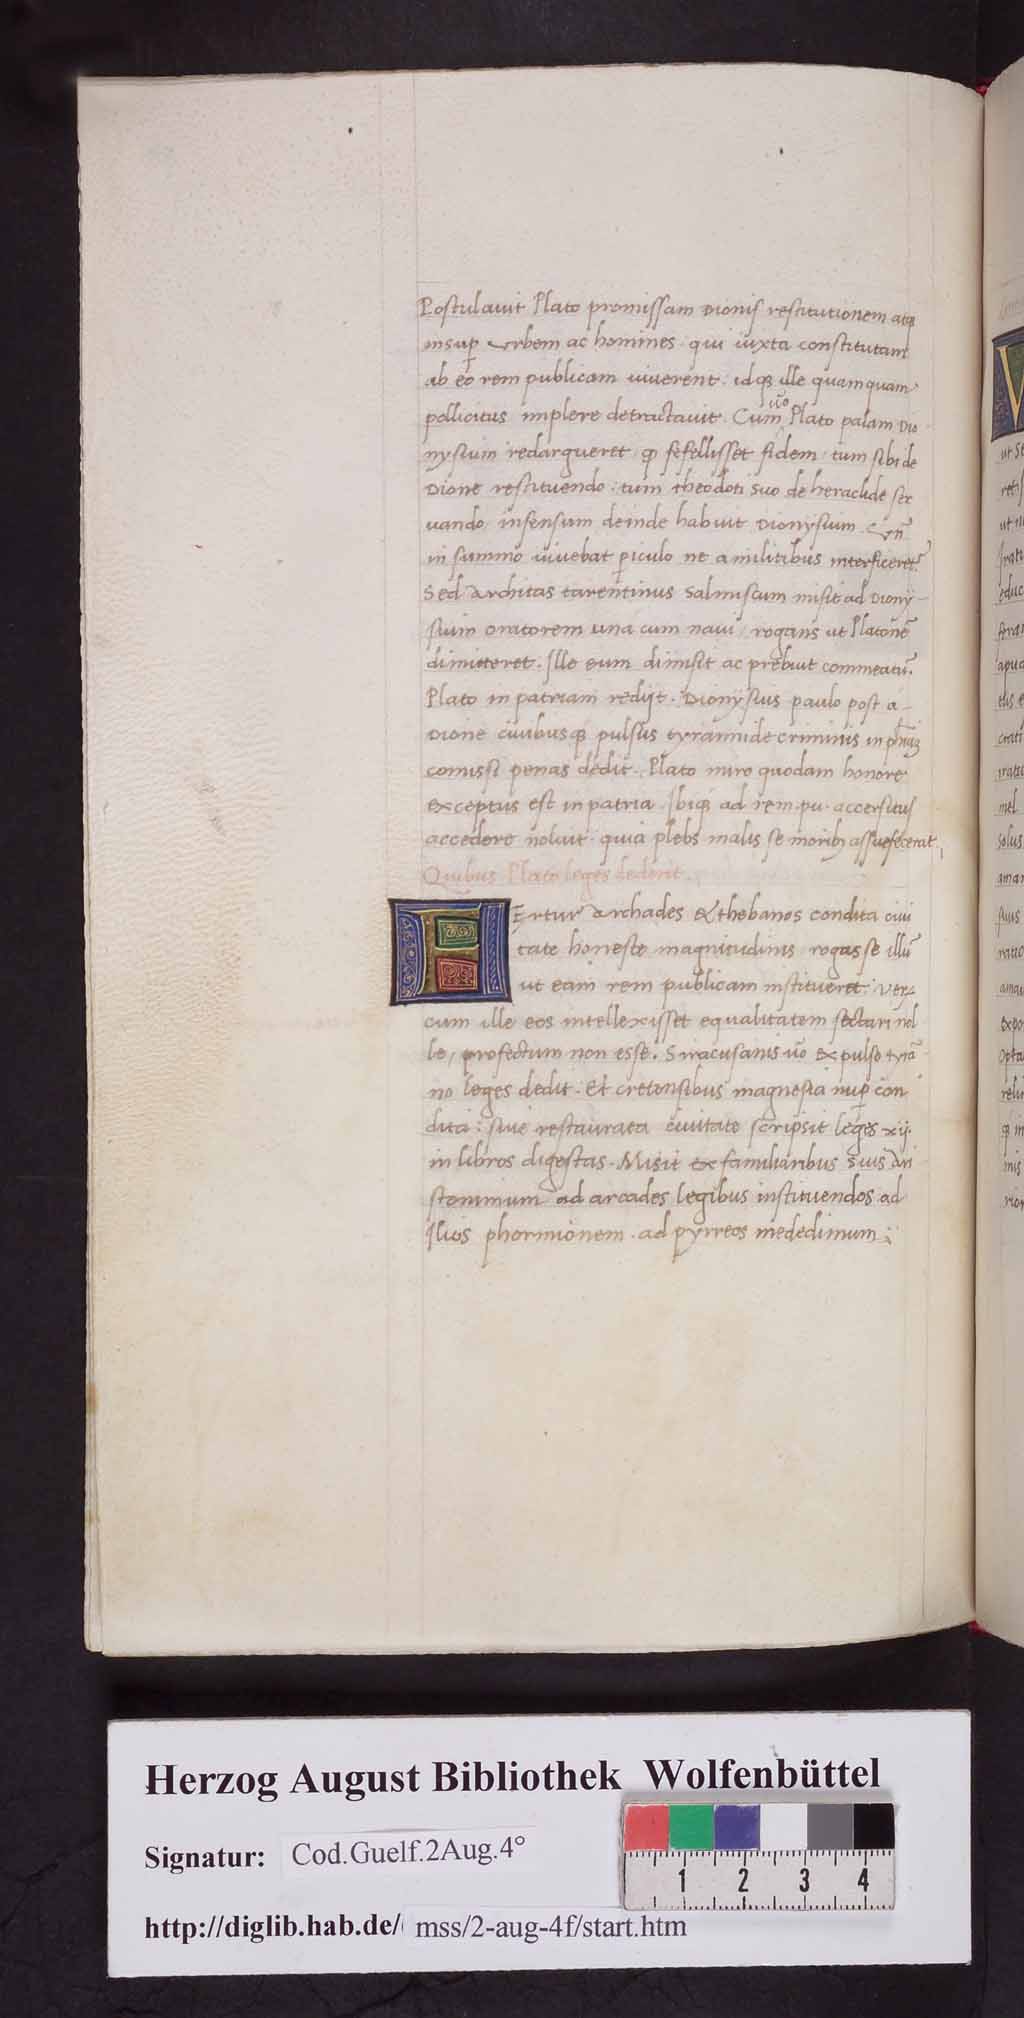 Postulavit Plato promissam Dionis restitutionem atq3
insup̱ urbem ac homines qui iuxta constitutam
ab eo rem publicam viverent. idq3 ille quamquam
pollicitus implere detractavit. Cum ṽo Plato palam Dio
nysium redargueret qꝫ fefellisset fidem: tum sibi de
Dione restituendo: tum theodoti suo de heraclide ser
vando, infensum deinde habuit Dionysium. Un̄
in summo vivebat p̱iculo ne a militibus interficeret̃
Sed Architas tarentinus Salmiscum misit ad Diony-
sium oratorem una cum navi, rogans ut Platonē
dimitteret. Ille eum dimisit ac prebuit commeatū.
Plato in patriam redijt. Dionysius paulo post a
Dione civibusq3 pulsus tyrannide criminis in
comissi penas dedit. Plato miro quodam honore
exceptus est in patria. Ibiq3 ad rem pu. accersitus
accedere noluit quia plebs malis se morib3 assuefecerat.
Quibus Plato leges dederit.
FErtur Archades & thebanos condita civi
tate honeste magnitudinis rogasse illū
ut eam rem publicam institueret. Verꝝ
cum ille eos intellexisset equalitatem sectari nol
le, profectum non esse. Siracusanis ṽo expulso tyrā
no leges dedit. Et cretensibus magnesia nup̱ con
dita: sive restaurata civitate scripsit leges xij.
in libros digestas. Misit ex familiaribus suis Ari
stonimum ad arcades legibus instituendos ad
Ilios phormionem. ad pyrreos mededimum.
ut
Herzog August Bibliothek Wolfenbüttel
Signatur: Cod.Guelf.2Aug.4°
1 2 3 4
http://diglib.hab.de/ mss/2-aug-4f/start.htm